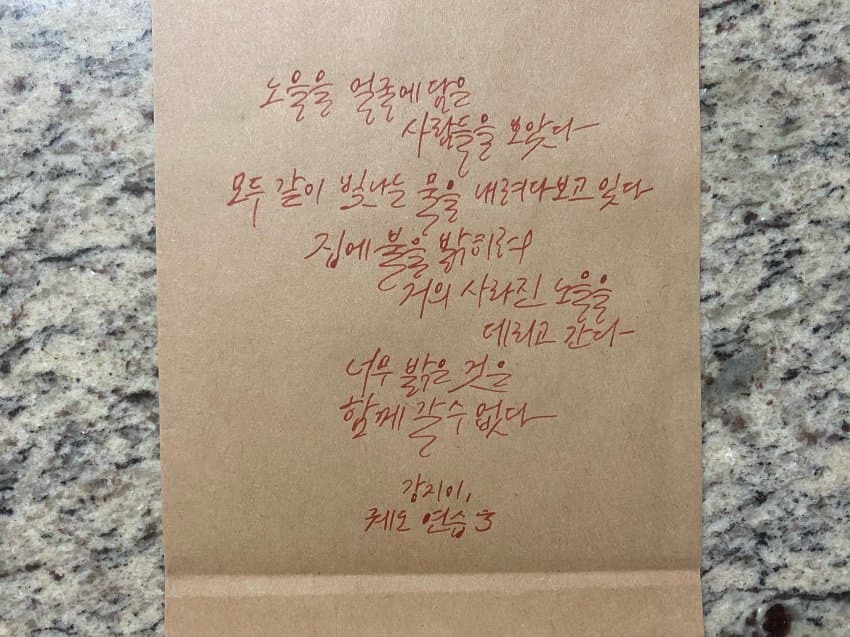 노을을 얼굴에 담은
사람들을 보았다
모두 같이 빛나는 묵을 내려다보고 있다
집에 불을 밝히려
거의 사라진 노을을
데리고 간다
너무 밝은 것은
함께 갈 수 없다
강지이,
궤도 연습 3